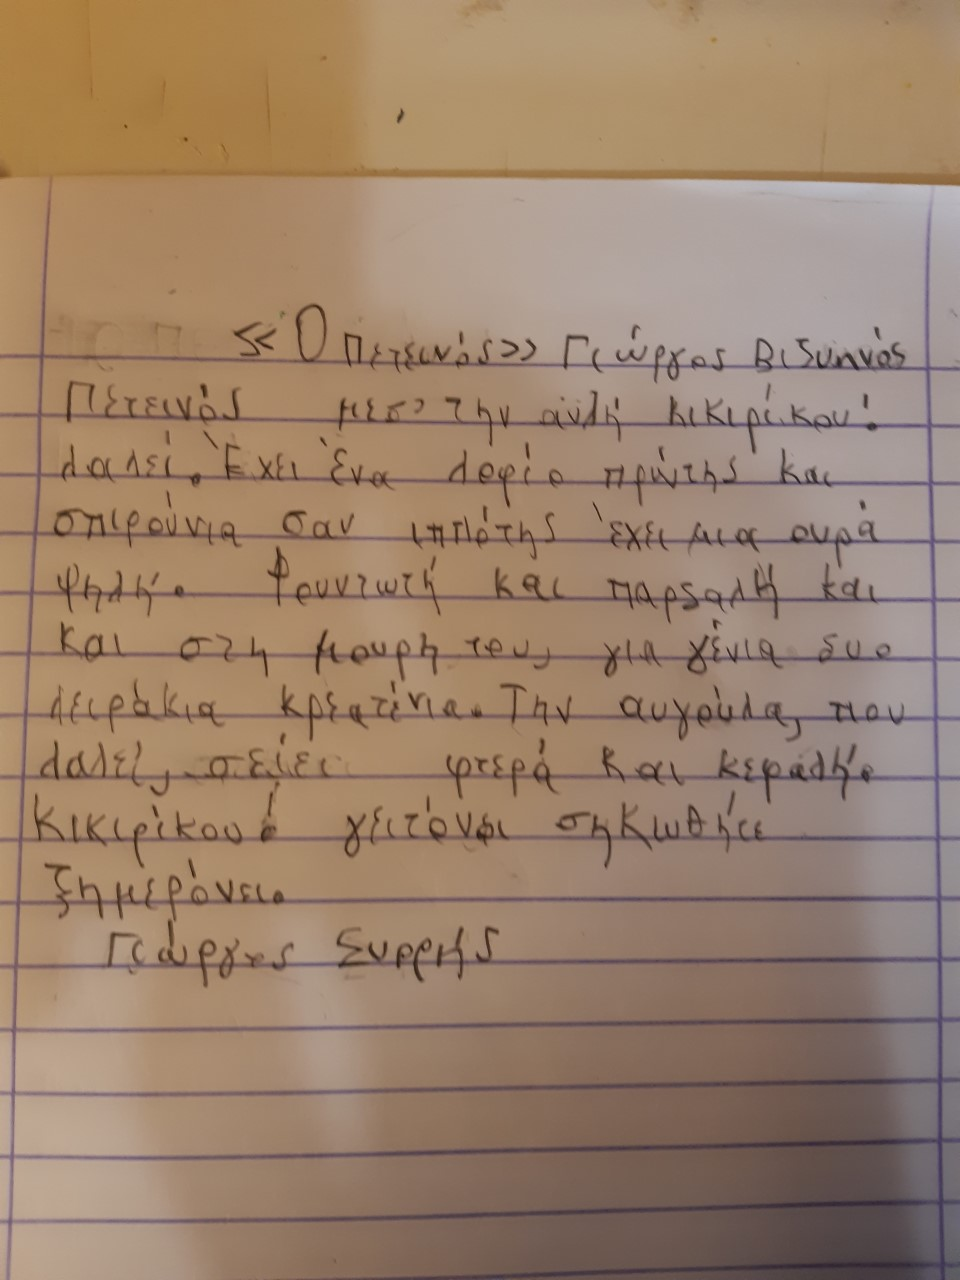 <<Ο Πετεινός>> Γιώργος Βιζυηνός
Πετεινός μεσ' την αυλή κικιρίκου!
λαλεί. Έχει ένα λοφίο πρώτης και
σπιρούνια σαν ιππότης έχει μια ουρά
ψηλή. Φουντωτή και παρδαλή και
και στη μουρη του, για γένια δυο
λειράκια κρεατένια. Την αυγούλα, που
λαλεί, σείει φτερά και κεφαλή.
Κικιρίκου! γειτόνοι σηκωθήτε
ξημερόνει.
Γιώργος Συρρής